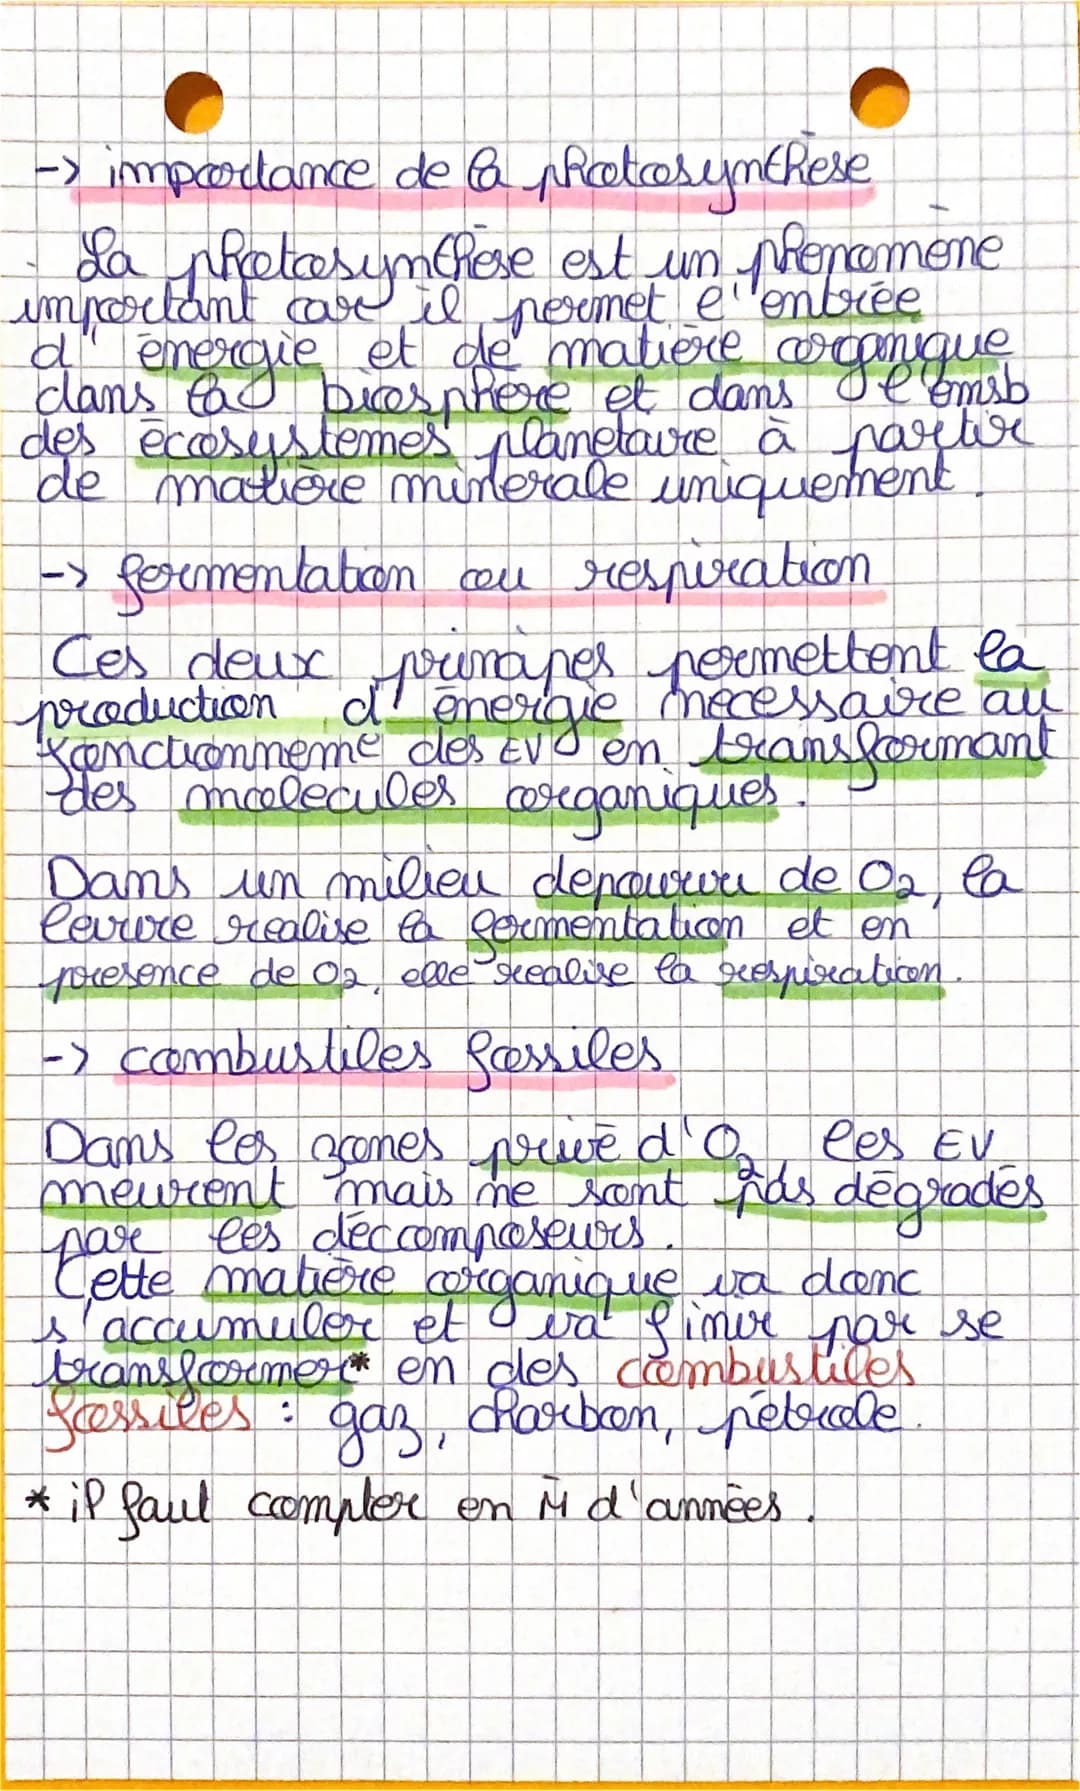 -> importance de la photosynthèse
La photosynthèse est un phenomène
important car il permet l'entrée
d'énergie et de matière organique
dans la biosphère et dans l'emsb
des écosystemes planetaire à partir
de matière minerale uniquement.
-> fermentation ou respiration
Ces deux principes permettent la
production d'énergie necessaire au
fonctionneme des EV en transformant
des molecules organiques.
Dans un milieu depourvu de O2, la
levure realise la fermentation et en
presence de O2, elle realise la respiration.
-> combustiles fossiles
Dans les zones privé d'O2 les EV
meurent mais ne sont pas dégradés
par les déccomposeurs.
Cette matière organique va donc
s'accumuler et va finir par se
transformer* en des combustiles
fossiles : gaz, charbon, pétrole.
* il faut compter en M d'années.